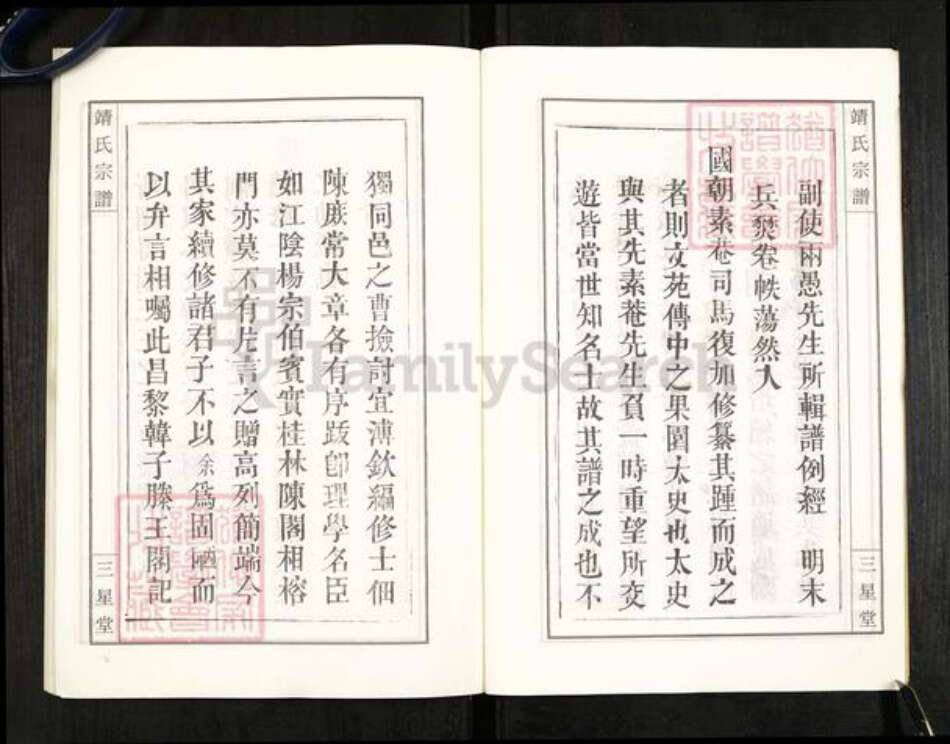 靖氏宗譜
三星堂
副使雨愚先生所輯譜例經 明末
兵燹卷帙蕩然入
國朝素菴司馬復加修纂其踵而成之
者則文苑傳中之果園太史也太史
與其先素菴先生負一時重望所交
遊皆當世知名士故其譜之成也不
獨同邑之曹撿討宜溥欽編修士佃
陳庶常大章各有序跋卽理學名臣
如江陰楊宗伯賓實桂林陳閣相榕
門亦莫不有片言之贈高列簡端今
其家續修諸君子不以余爲固陋而
以弁言相囑此昌黎韓子滕王閣記
靖氏宗譜
三星堂
FamilySearch